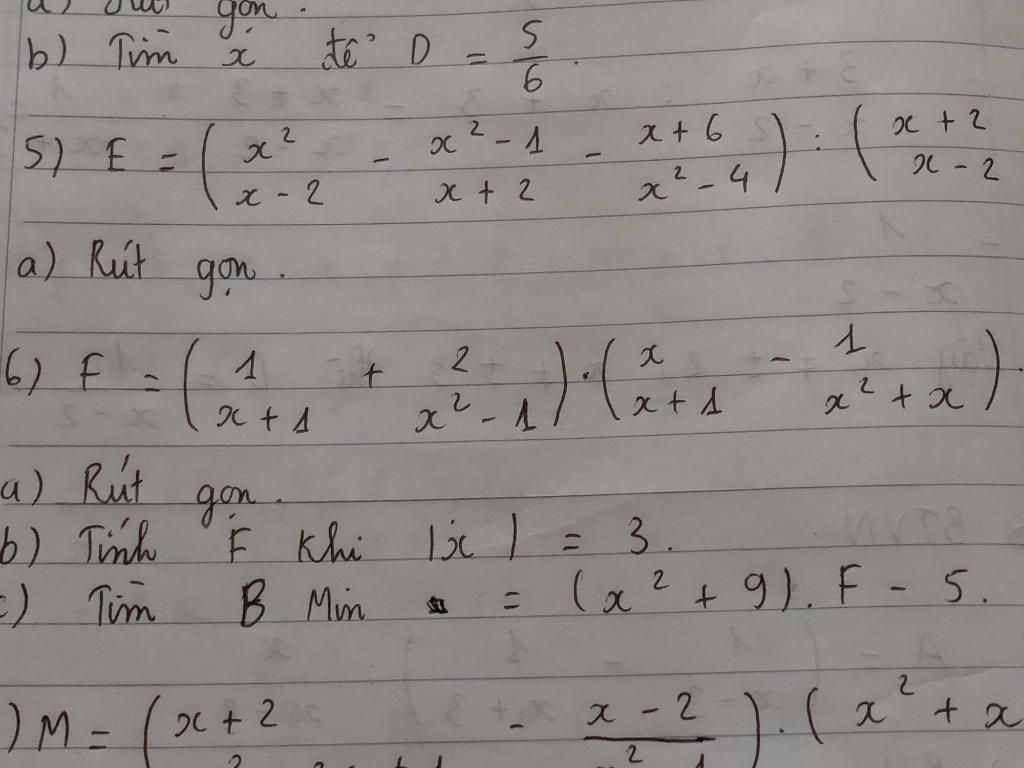 a) Rút gọn.
b) Tìm x để D = 5/6.
5) E = (x²/(x - 2) - (x² - 1)/(x + 2) - (x + 6)/(x² - 4)) : ((x + 2)/(x - 2)
a) Rút gọn.
6) F = (1/(x + 1) + 2/(x² - 1)) . (x/(x + 1) - 1/(x² + x)).
a) Rút gọn.
b) Tính F khi |x| = 3.
c) Tìm B Min = (x² + 9). F - 5.
) M = (x + 2 - x - 2) . (x² + x